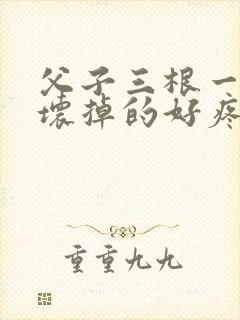 父子三根一
壊掉的好疼
重重九九